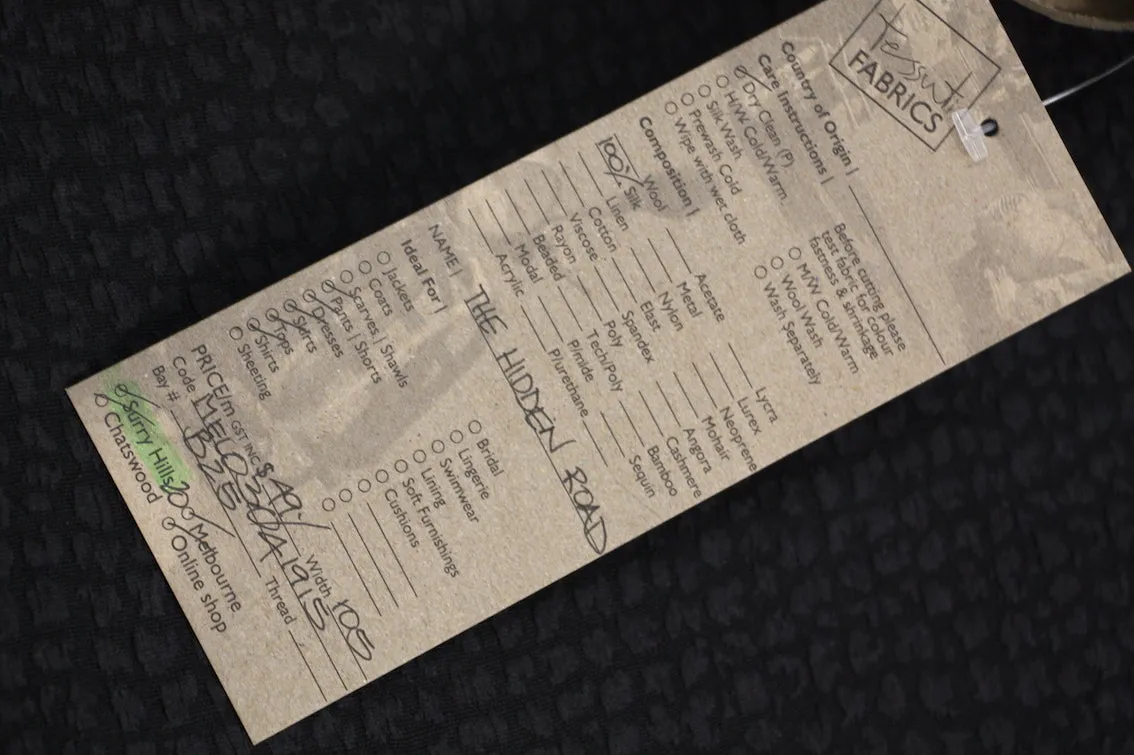 Tessuti
FABRICS
Country of Origin |
Care Instructions |
Dry Clean (P)
H/W Cold/Warm
Silk Wash
Prewash Cold
Wipe with wet cloth
Before cutting please
test fabric for colour
fastness & shrinkage
M/W Cold/Warm
Wool Wash
Wash Separately
Composition |
Wool
100% Silk
Linen
Cotton
Viscose
Rayon
Beaded
Modal
Acrylic
Acetate
Metal
Nylon
Elast
Spandex
Poly
Tech/Poly
P/mide
P/urethane
Lycra
Lurex
Neoprene
Mohair
Angora
Cashmere
Bamboo
Sequin
NAME | THE HIDDEN ROAD
Ideal For |
Jackets
Coats
Scarves | Shawls
Pants | Shorts
Dresses
Skirts
Tops
Shirts
Sheeting
Bridal
Lingerie
Swimwear
Lining
Soft Furnishings
Cushions
PRICE/m GST INC $ 49/ Width 105
Code MEL023041915
Bay # B25 Thread
Surry Hills 20 Melbourne
Chatswood Online shop